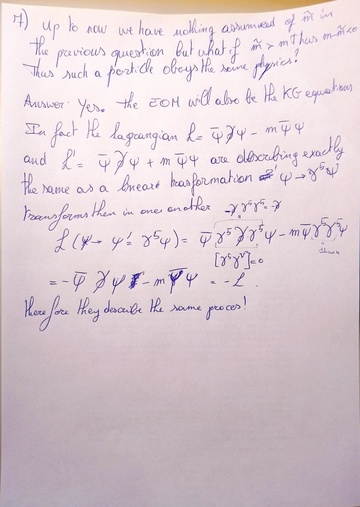 7) Up to now we have nothing assumed of m̃ in
the previous question but what if m̃ > m? thus m-m̃<0
Thus such a particle obeys the same physics!
Answer: Yes. the EOM will also be the KG equations
In fact the lagrangian L = ψ̄ ∂̸ ψ - m ψ̄ψ
and L' = ψ̄ ∂̸ ψ + m ψ̄ψ are describing exactly
the same as a linear trasformation ψ → γ⁵ψ
transforms then in one another -γ⁵γ⁵ = -∂̸
L(ψ → ψ' = γ⁵ψ) = ψ̄ γ⁵ ∂̸ γ⁵ψ - m ψ̄ γ⁵γ⁵ψ
[γ⁵γᵘ]=0
= -ψ̄ ∂̸ ψ - m ψ̄ψ = -L.
therefore they describe the same proces!